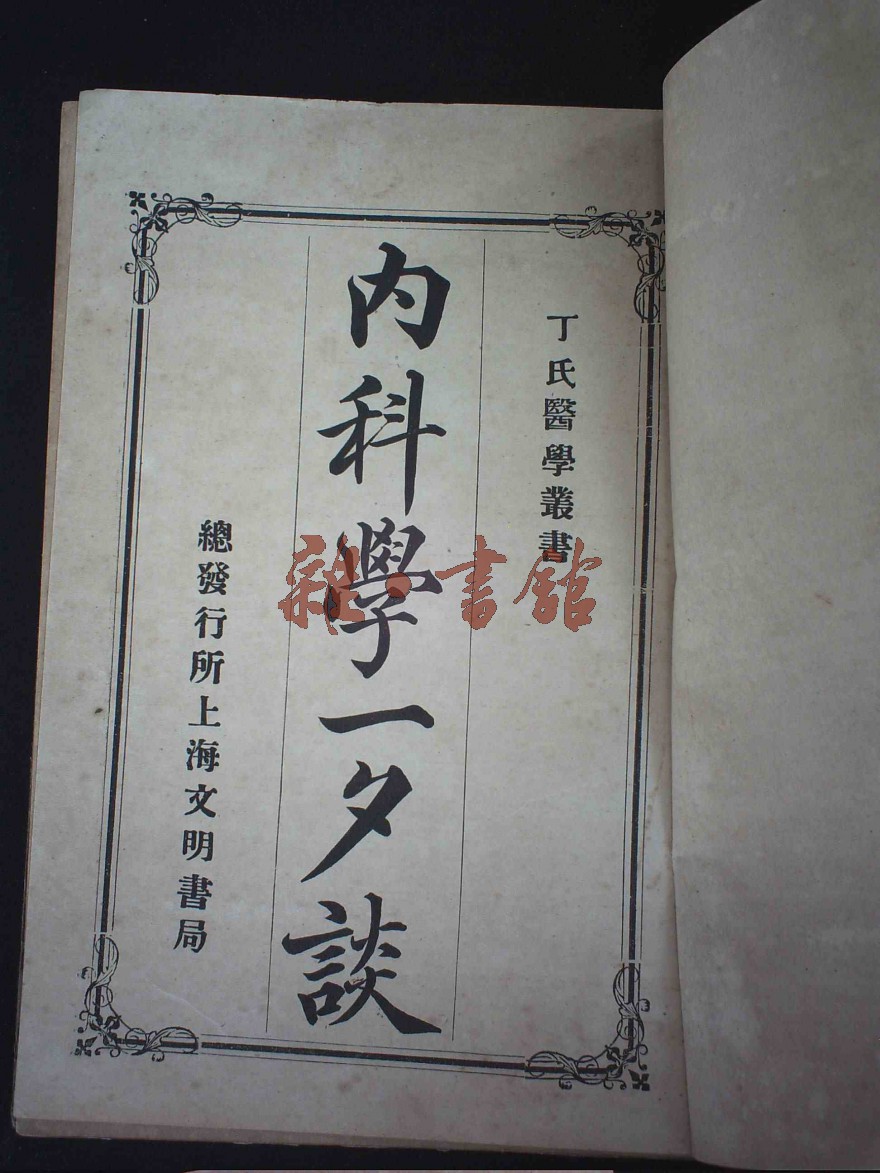 丁氏醫學叢書
內科學一夕談
總發行所上海文明書局
雜·書館